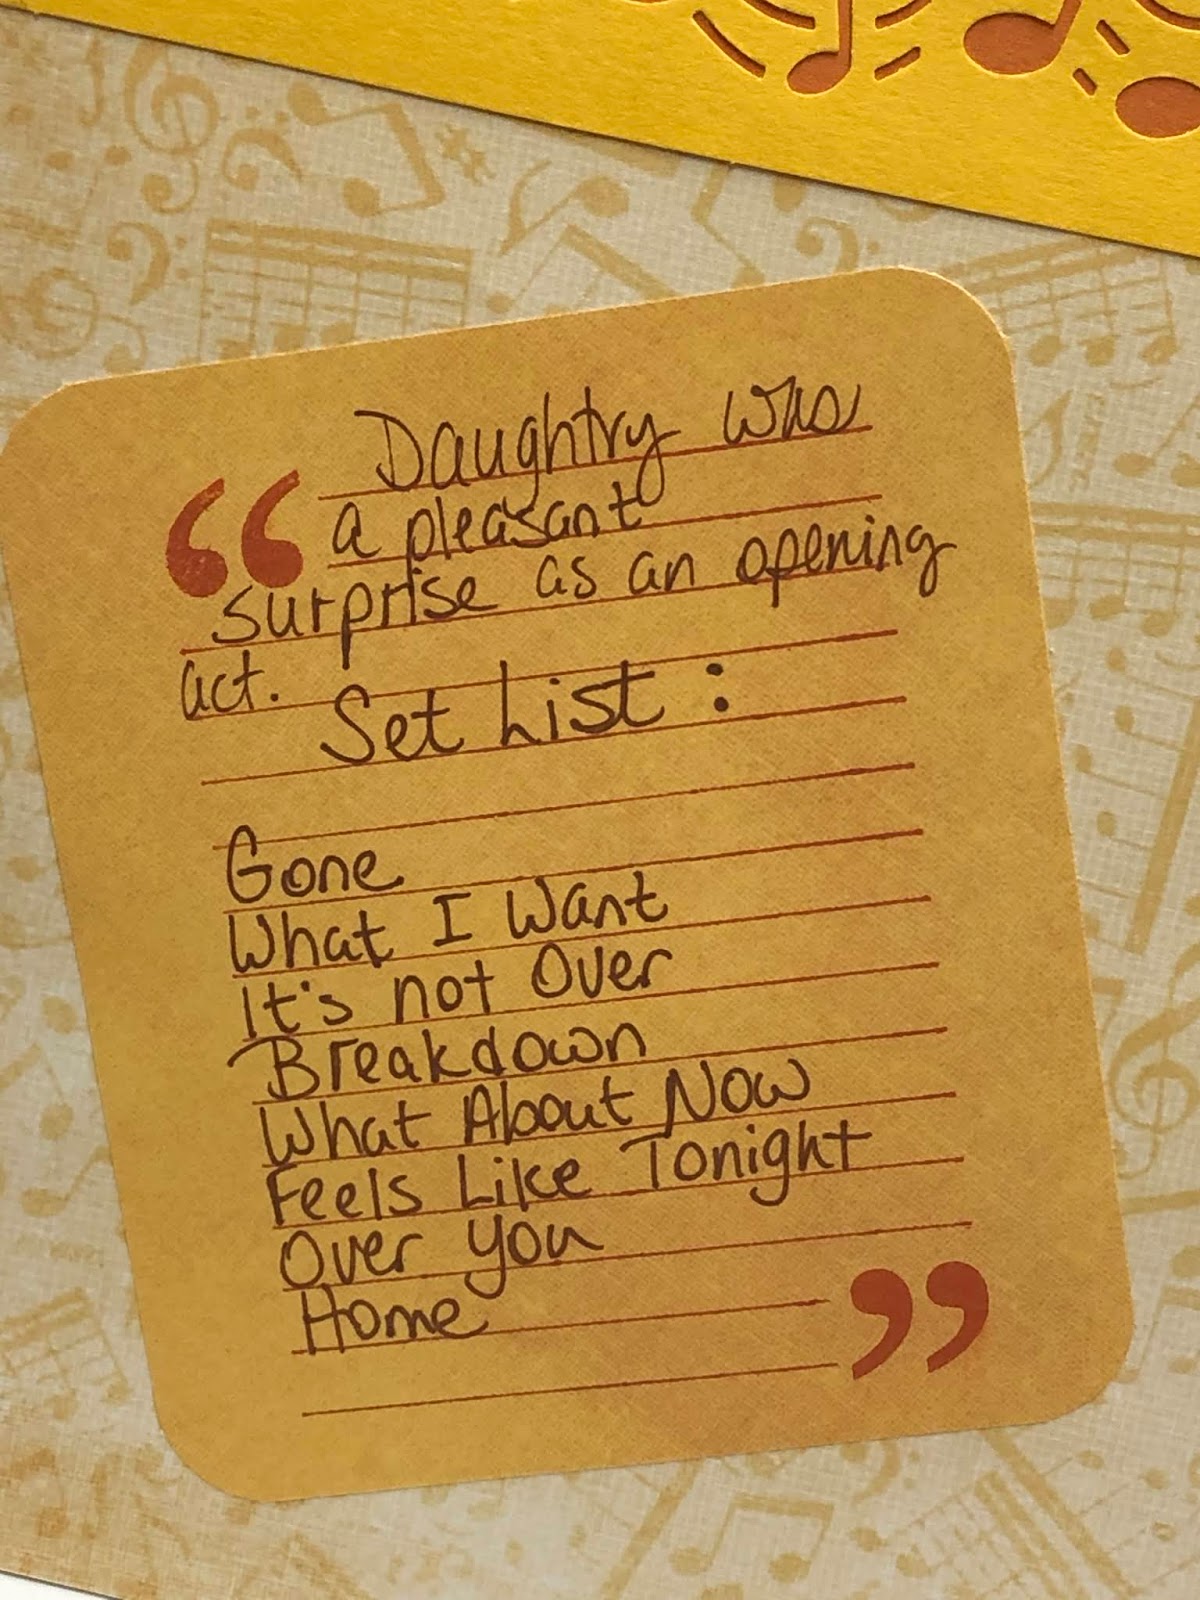 Daughtry was
a pleasant
surprise as an opening
act.
Set List :
Gone
What I Want
It's not Over
Breakdown
What About Now
Feels Like Tonight
Over you
Home